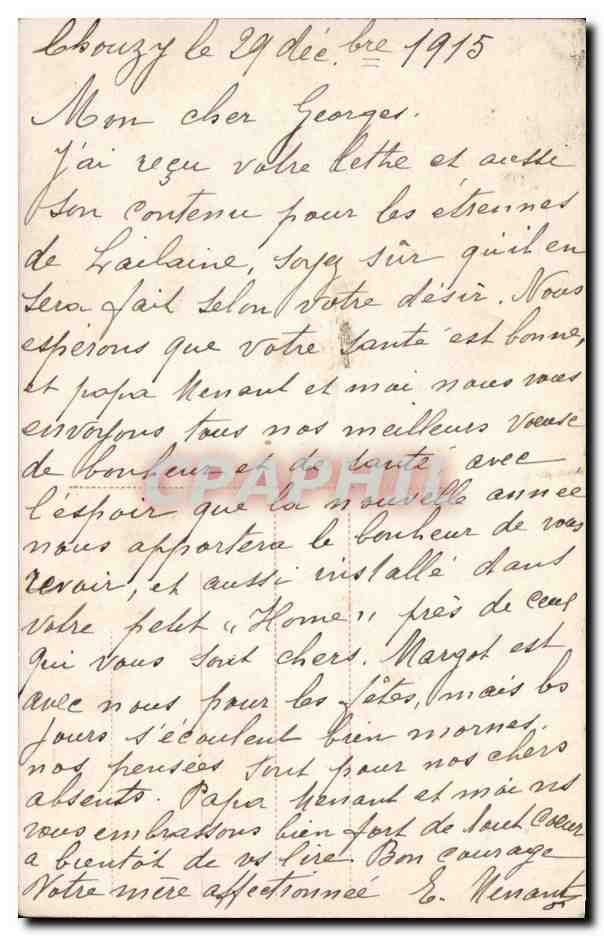 Chouzy le 29 déc.bre 1915
Mon cher Georges.
J'ai reçu votre lettre et aussi
son contenu pour les étrennes
de, soyez sûr qu'il en
sera fait selon votre désir. Nous
espérons que votre santé est bonne,
et papa Menant et moi nous vous
envoyons tous nos meilleurs voeux
de bonheur et de santé avec
l'espoir que la nouvelle année
nous apportera le bonheur de vous
revoir, et aussi installé dans
votre petit "Home" près de ceux
qui vous sont chers. Margot est
avec nous pour les fêtes, mais les
jours s'écoulent bien mornes.
nos pensées sont pour nos chers
absents. Papa Menant et moi ns
vous embrassons bien fort de tout coeur
a bientôt de vs lire. Bon courage
Votre mère affectionnée E. Menant
CPAPHIL